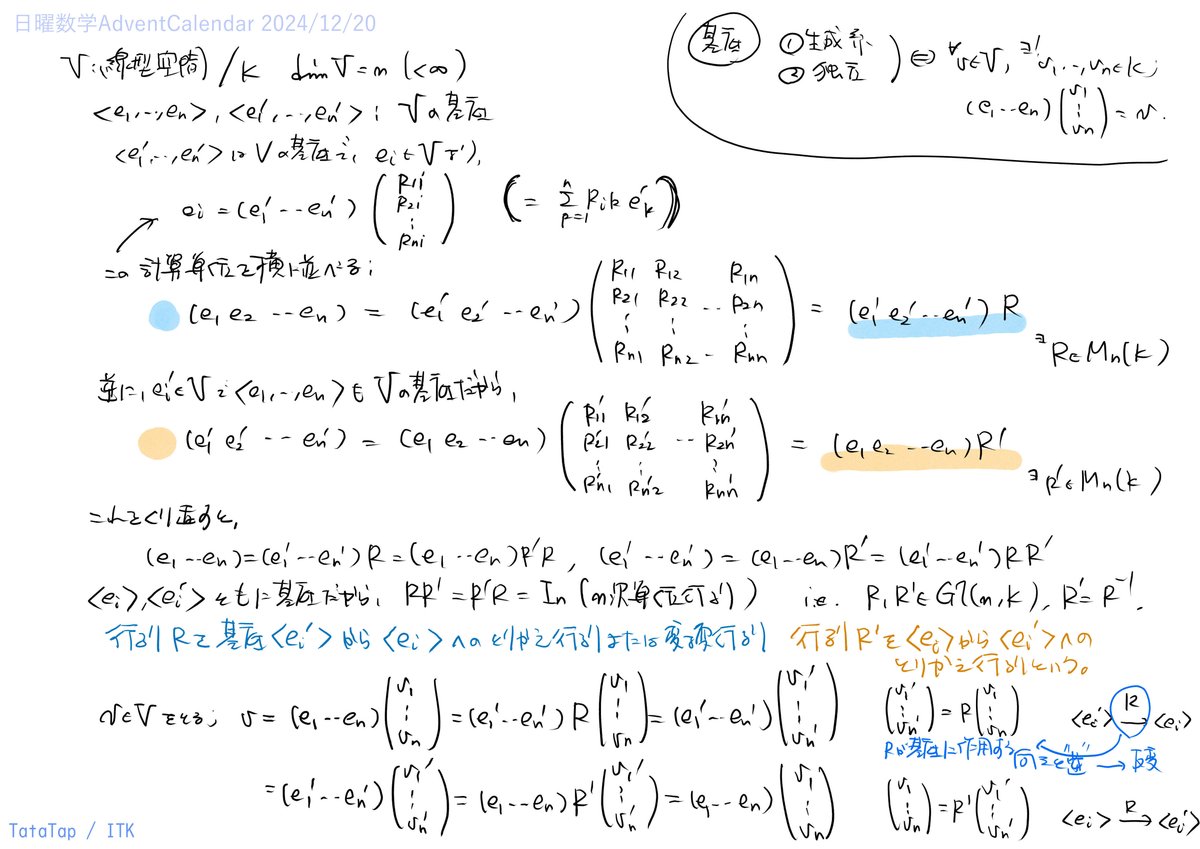 日曜数学AdventCalendar 2024/12/20
基底 ①生成系 ②独立 ⇔ ∀v∈V, ∃!v1,…,vn∈K; (e1…en)(v1 ⋮ vn) = v.
V:線型空間/K dimV=n (<∞)
<e1,…,en>, <e1′,…,en′>: Vの基底
<e1′,…,en′>はVの基底で, ei∈Vより,
ei = (e1′…en′)(R1i R2i ⋮ Rni) (= Σ Rik ek′)
この計算単位で横に並べる;
(e1 e2 … en) = (e1′ e2′ … en′)(R11 R12 R1n R21 R22 … R2n ⋮ ⋮ ⋮ Rn1 Rn2 … Rnn) = (e1′ e2′ … en′) R
∃R∈Mn(K)
逆に, ei′∈Vで<e1,…,en>もVの基底だから,
(e1′ e2′ … en′) = (e1 e2 … en)(R11′ R12′ R1n′ R21′ R22′ … R2n′ ⋮ ⋮ ⋮ Rn1′ Rn2′ Rnn′) = (e1 e2 … en)R′
∃R′∈Mn(K)
これをくり返すと,
(e1…en)=(e1′…en′)R=(e1…en)R′R, (e1′…en′)=(e1…en)R′=(e1′…en′)RR′
<ei>,<ei′>ともに基底だから, RR′=R′R=In (n次単位行列) i.e. R,R′∈GL(n,K), R′=R⁻¹.
行列Rを基底<ei′>から<ei>へのとりかえ行列または変換行列 行列R′を<ei>から<ei′>への
とりかえ行列という。
v∈Vをとる; v = (e1…en)(v1 ⋮ vn) = (e1′…en′) R (v1 ⋮ vn) = (e1′…en′)(v1′ ⋮ vn′) (v1′ ⋮ vn′) = R(v1 ⋮ vn) <ei′> R→ <ei>
Rが基底に作用する 向きと逆 → 反変
= (e1′…en′)(v1′ ⋮ vn′) = (e1…en)R′(v1′ ⋮ vn′) = (e1…en)(v1 ⋮ vn) (v1 ⋮ vn) = R′(v1′ ⋮ vn′) <ei> R→ <ei′>
TataTap / ITK